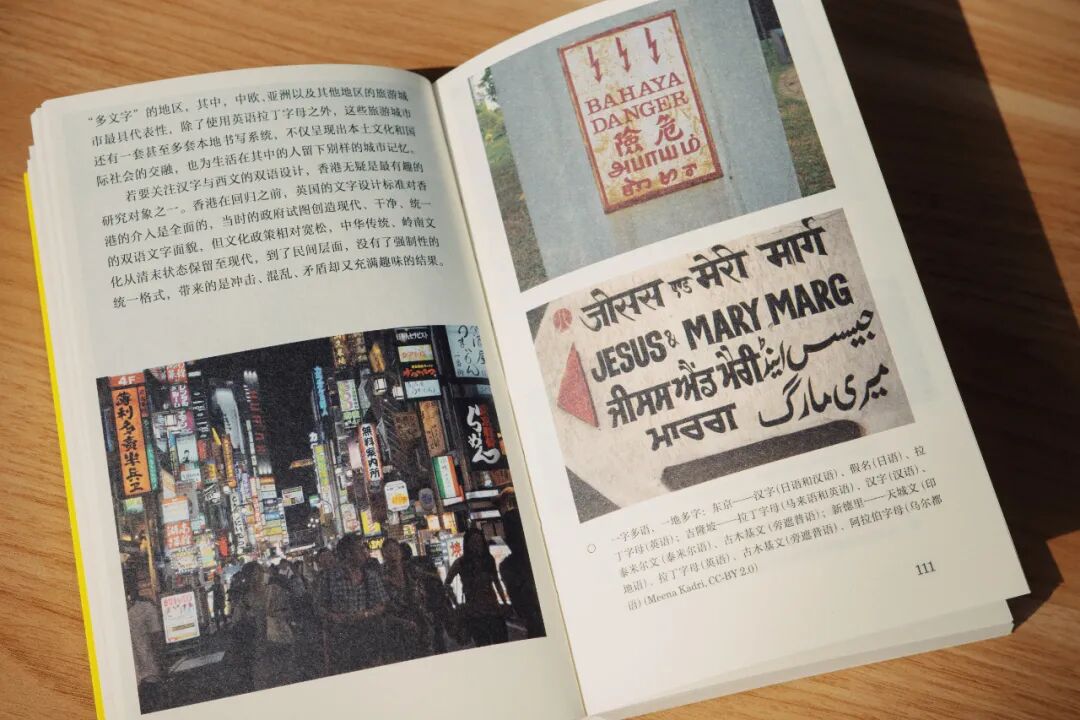 “多文字”的地区，其中，中欧、亚洲以及其他地区的旅游城
市最具代表性，除了使用英语拉丁字母之外，这些旅游城市
还有一套甚至多套本地书写系统，不仅呈现出本土文化和国
际社会的交融，也为生活在其中的人留下别样的城市记忆。
若要关注汉字与西文的双语设计，香港无疑是最有趣的
研究对象之一。香港在回归之前，英国的文字设计标准对香
港的介入是全面的，当时的政府试图创造现代、干净、统一
的双语文字面貌，但文化政策相对宽松，中华传统、岭南文
化从清末状态保留至现代，到了民间层面，没有了强制性的
统一格式，带来的是冲击、混乱、矛盾却又充满趣味的结果。
4F
薄利多賣半兵ヱ
無料案内所
らーめん
BAHAYA
DANGER
險危
அபாயம்
जीसस एण्ड मेरी मार्ग
JESUS & MARY MARG
ਜੀਸਸ ਐਂਡ ਮੈਰੀ
ਮਾਰਗ
جیسس اینڈ
میری مارگ
一字多语，一地多字：东京——汉字（日语和汉语）、假名（日语）、拉
丁字母（英语）；吉隆坡——拉丁字母（马来语和英语）、汉字（汉语）、
泰米尔文（泰米尔语）、古木基文（旁遮普语）；新德里——天城文（印
地语）、拉丁字母（英语）、古木基文（旁遮普语）、阿拉伯字母（乌尔都
语）(Meena Kadri, CC-BY 2.0)
111